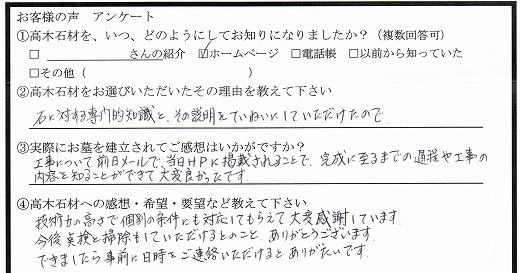 お客様の声　アンケート
①高木石材を、いつ、どのようにしてお知りになりましたか？（複数回答可）
□　　　　　　さんの紹介　☑ホームページ　□電話帳　□以前から知っていた
□その他（　　　　　　　　　　）
②高木石材をお選びいただいたその理由を教えて下さい
石に対する専門的知識と、その説明をていねいにしていただけたので
③実際にお墓を建立されてご感想はいかがですか？
工事について前日メールで、当日HPに掲載されることで、完成に至るまでの過程や工事の
内容を知ることができて大変良かったです。
④高木石材への感想・希望・要望など教えて下さい
技術力の高さで個別の条件にも対応してもらえて大変感謝しています。
今後点検と掃除もしていただけるとのこと、ありがとうございます。
できましたら事前に日時をご連絡いただけるとありがたいです。